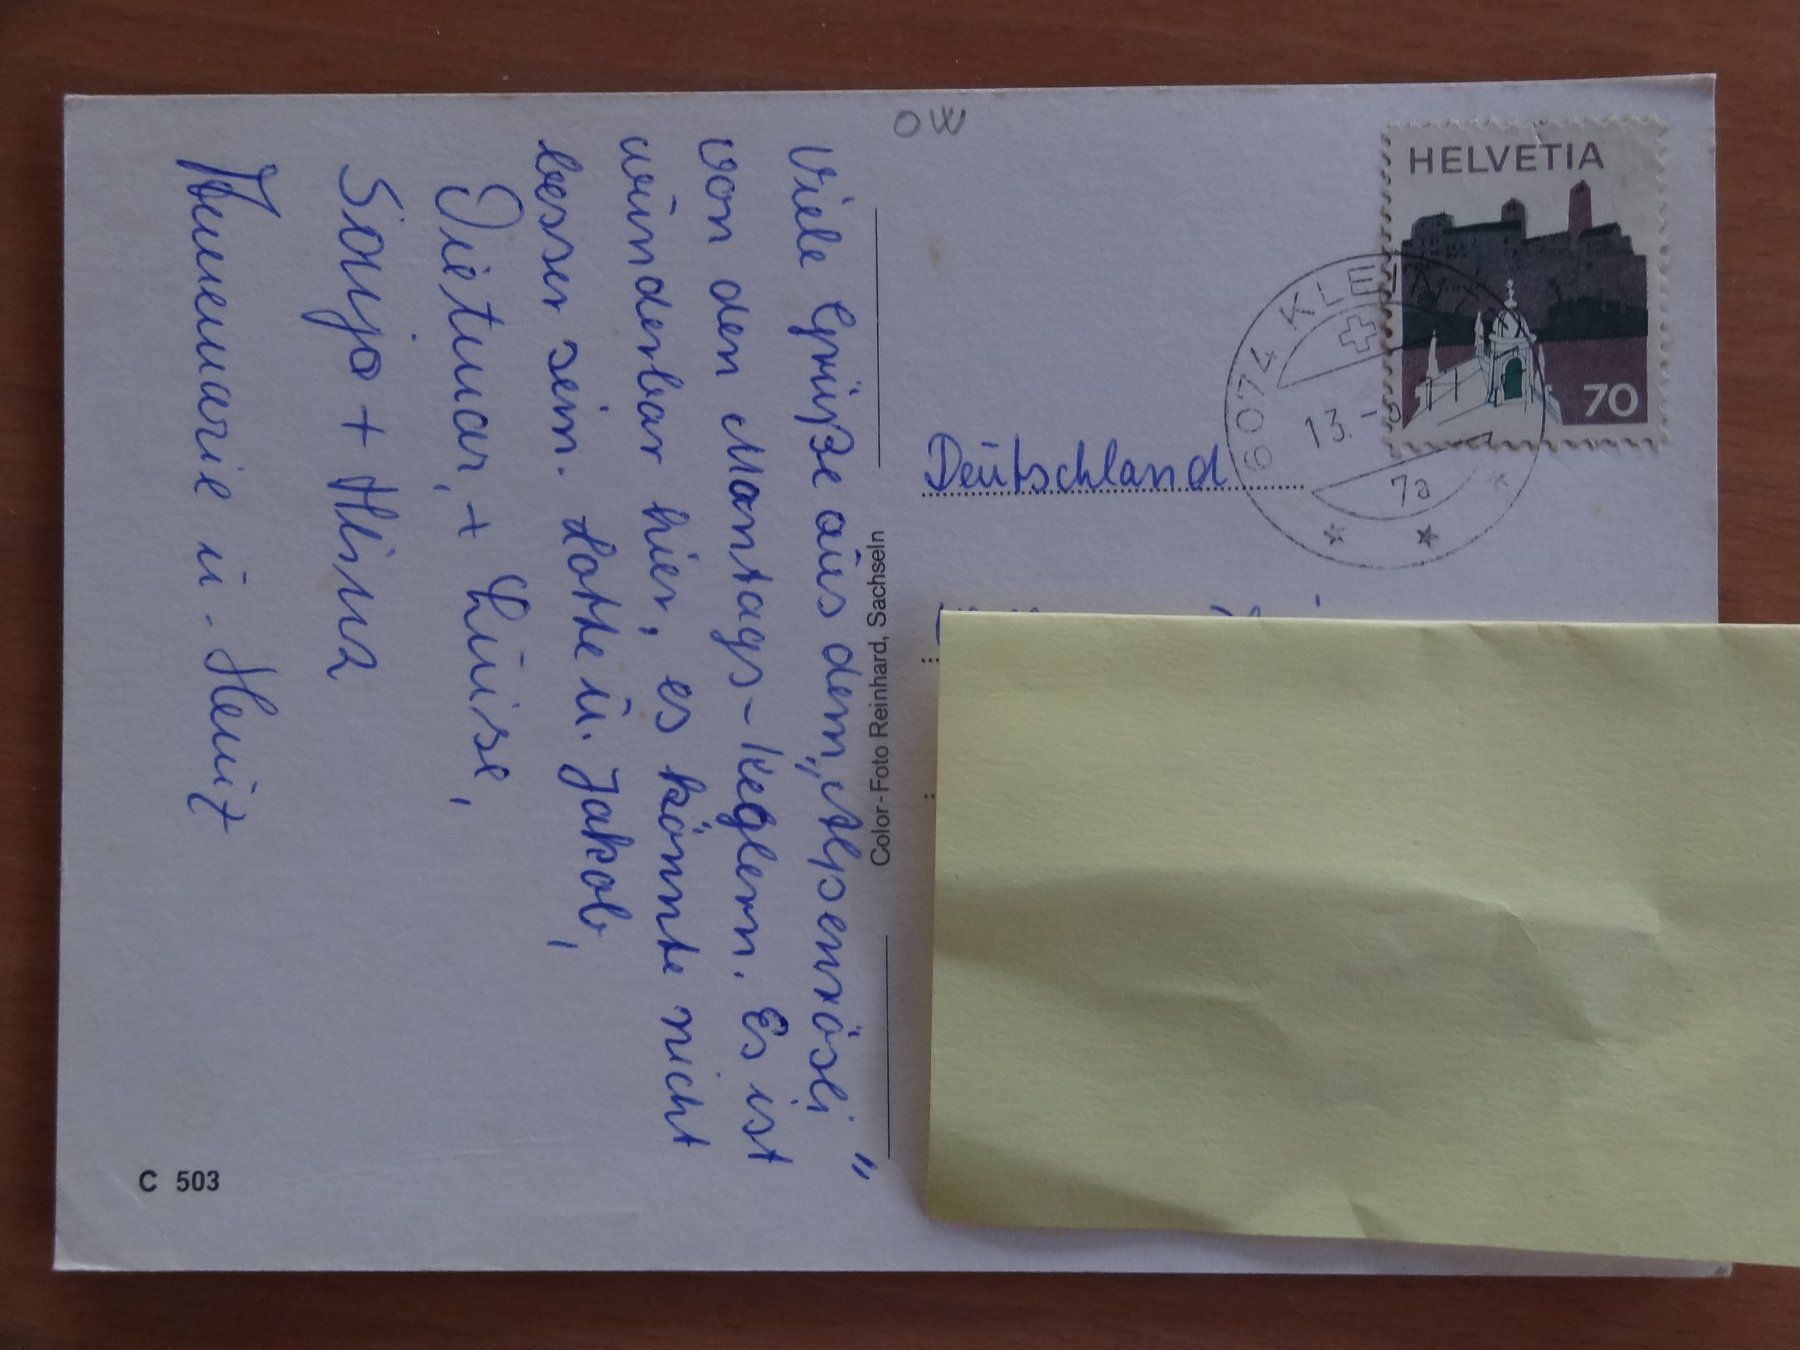 OW
HELVETIA
70
6074 KLE
13.-
7a
Deutschland
Color-Foto Reinhard, Sachseln
C 503
Viele Grüße aus dem „Alpenrösli"
von den Montags-Keglern. Es ist
wunderbar hier, es könnte nicht
besser sein. Lotte u. Jakob,
Dietmar, + Luise,
Sonja +
Annemarie u. Heinz